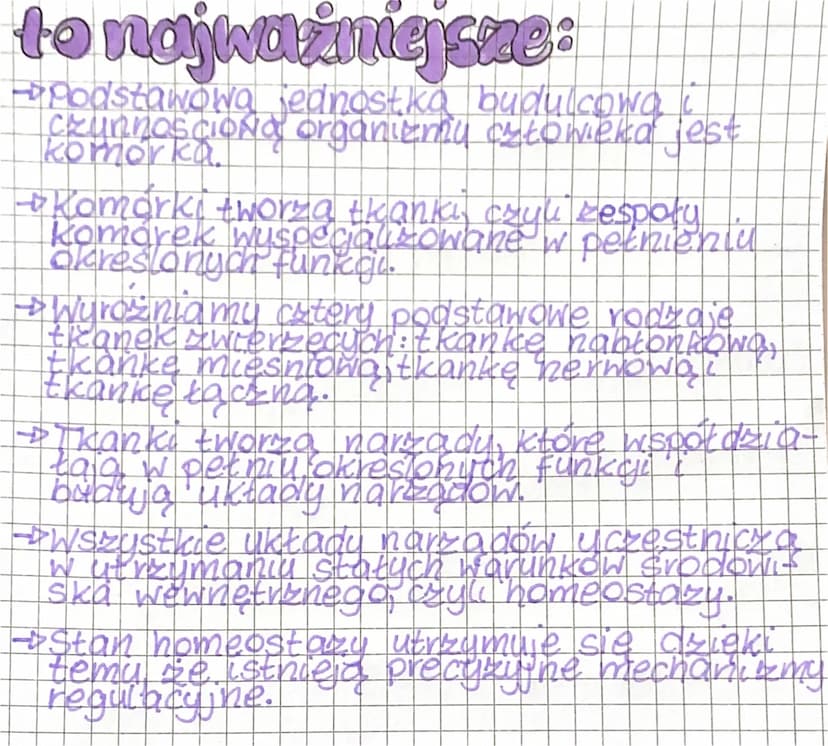 to najważniejsze:
→ Podstawową jednostką budulcową i
czynnościową organizmu człowieka jest
komórka.
→ Komórki tworzą tkanki, czyli zespoły
komórek wyspecjalizowane w pełnieniu
określonych funkcji.
→ Wyróżniamy cztery podstawowe rodzaje
tkanek zwierzęcych: tkankę nabłonkową,
tkankę mięśniową, tkankę nerwową i
tkankę łączną.
→ Tkanki tworzą narządy, które współdzia-
łają w pełniu określonych funkcji i
budują układy narządów.
→ Wszystkie układy narządów uczestniczą
w utrzymaniu stałych warunków środowi-
ska wewnętrznego, czyli homeostazy.
→ Stan homeostazy utrzymuje się dzięki
temu, że istnieją precyzyjne mechanizmy
regulacyjne.